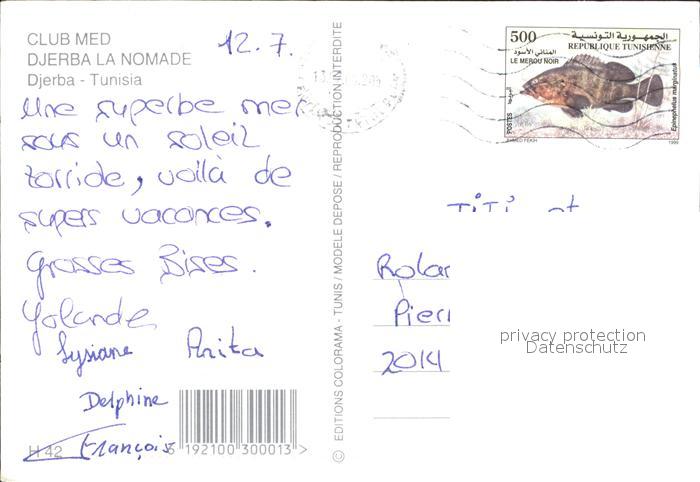 CLUB MED
DJERBA LA NOMADE
Djerba - Tunisia
12.7.
Une superbe mer
sous un soleil
torride, voilà de
supers vacances.
Grosses Bises.
Yolande
Lysiane Anita
Delphine
François
H 42
192100 300013 >
© EDITIONS COLORAMA - TUNIS / MODELE DEPOSE / REPRODUCTION INTERDITE
500
الجمهورية التونسية
REPUBLIQUE TUNISIENNE
المناني الأسود
LE MEROU NOIR
Epinephelus marginatus
POSTES
البريد
1999
Titi et
Rolar
Pieri
2014
privacy protection
Datenschutz